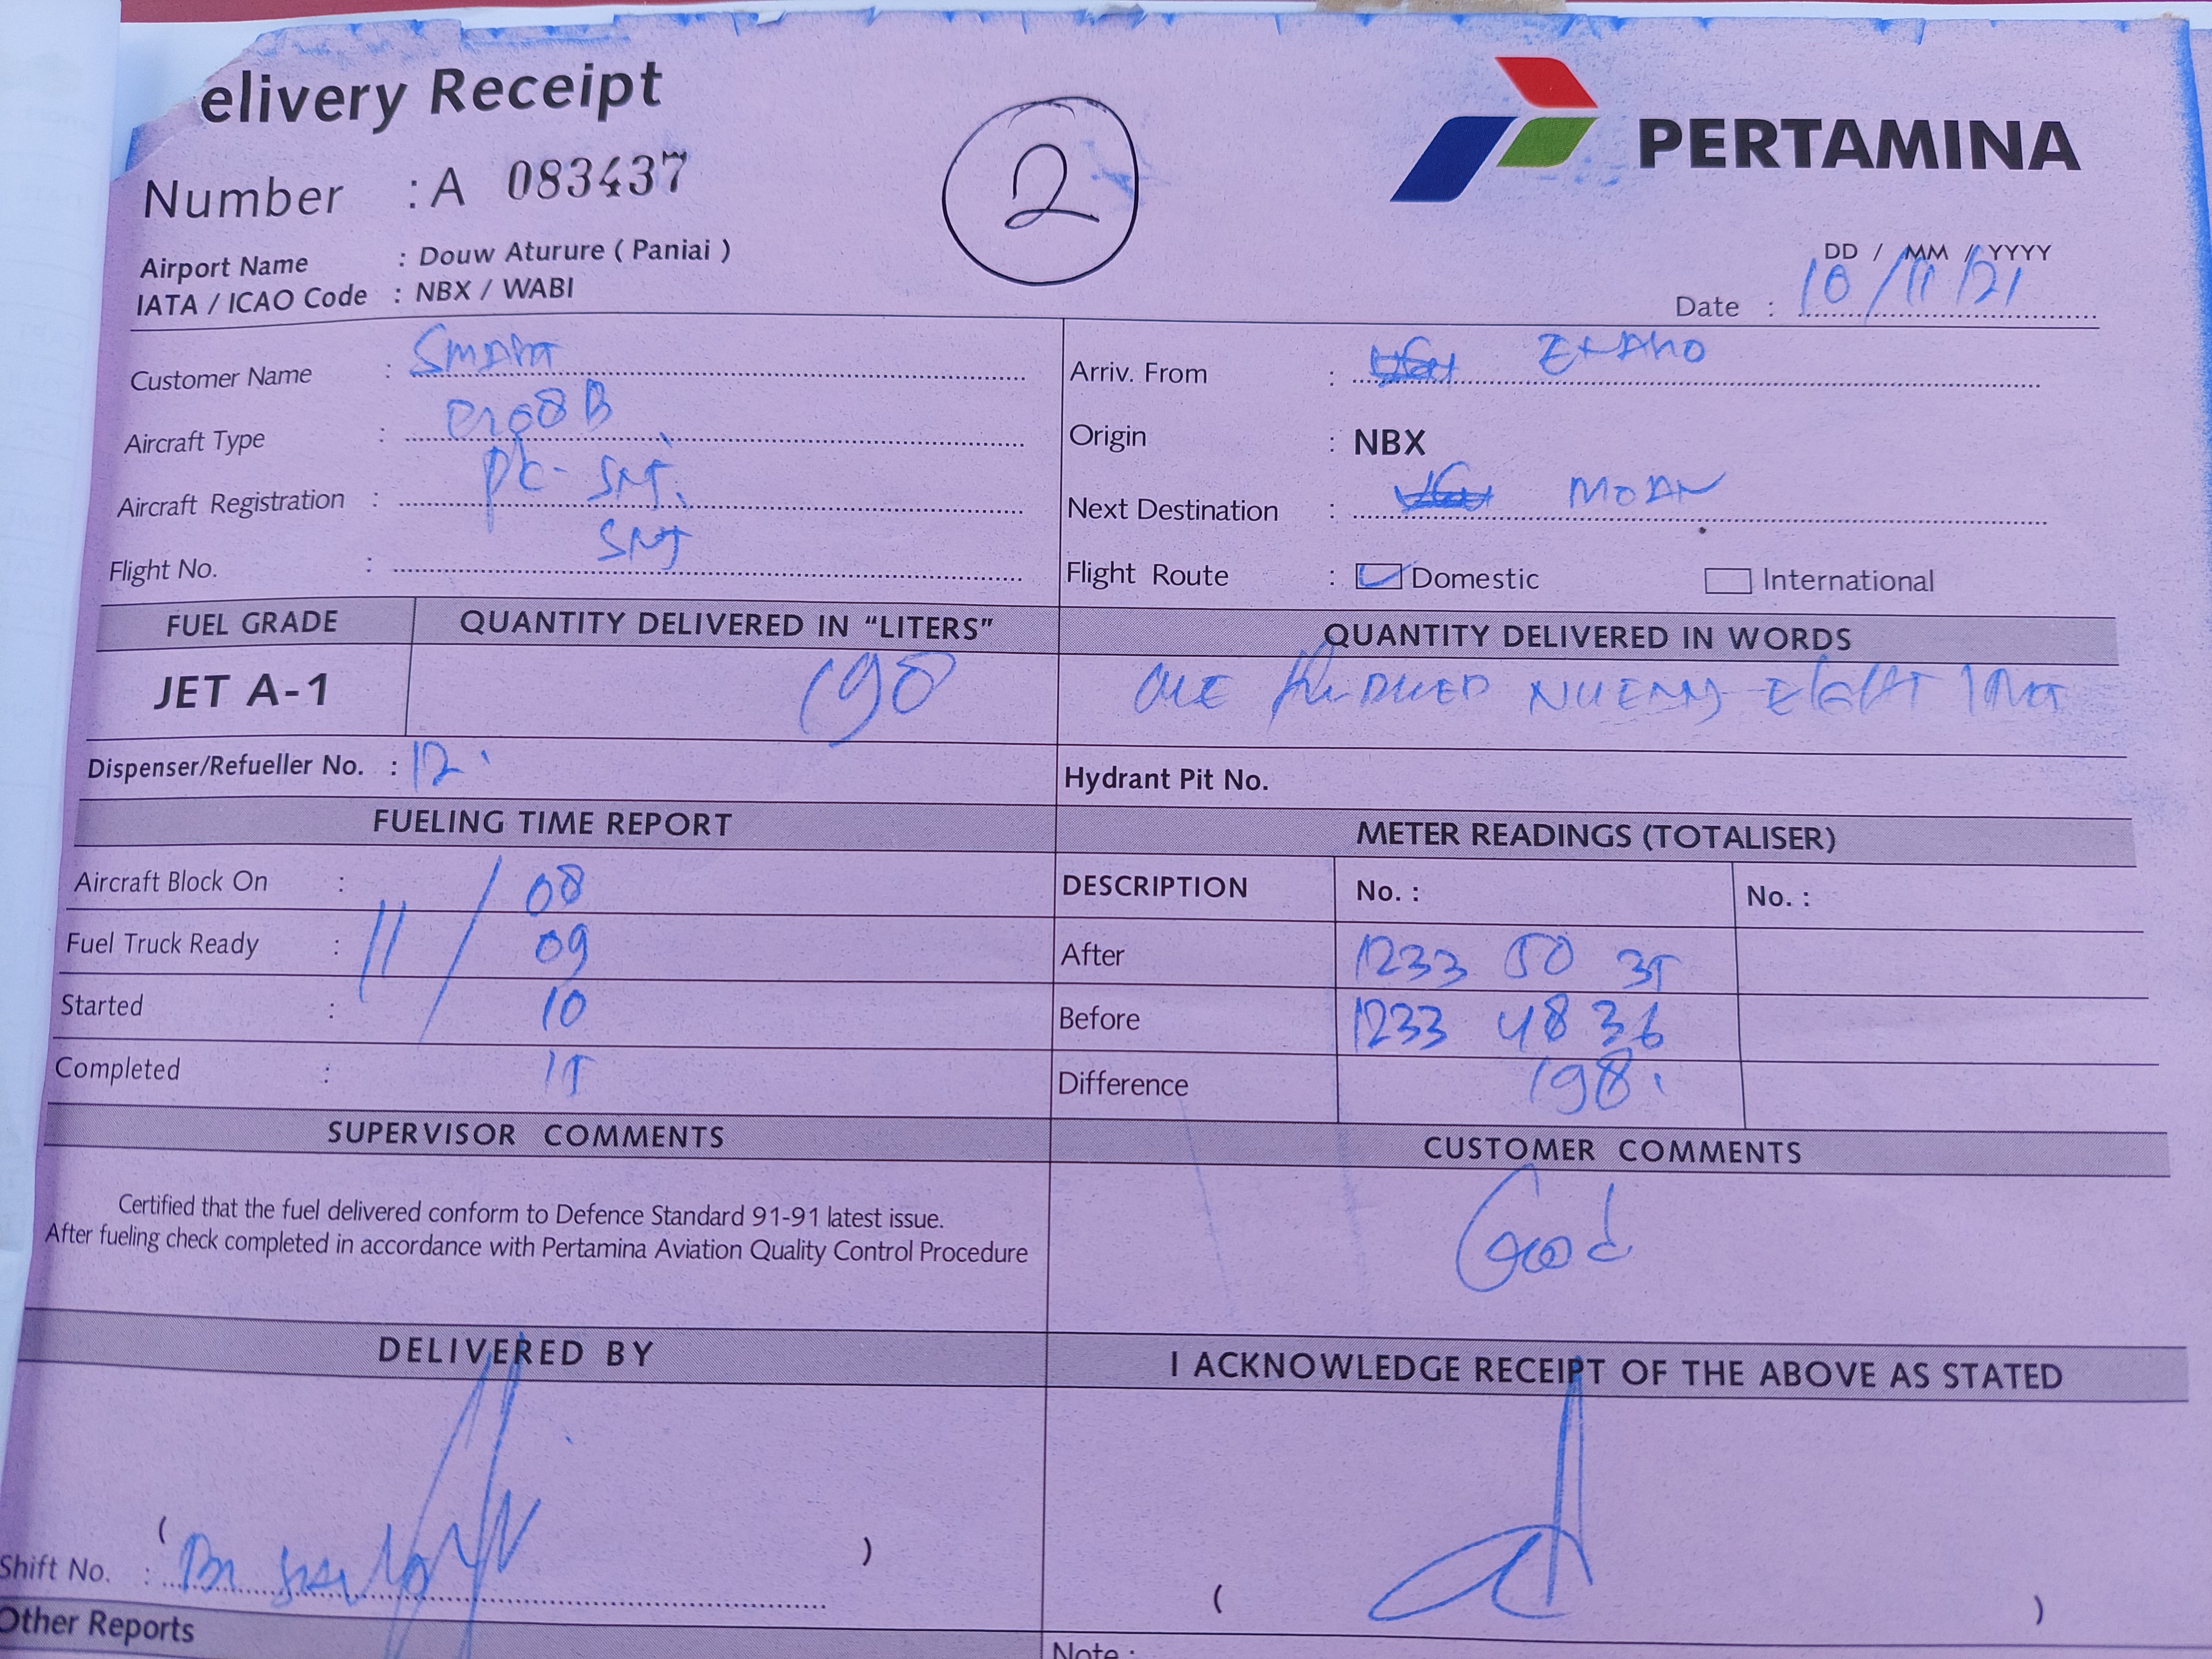 elivery Receipt
PERTAMINA
2
Number : A 083437
Airport Name : Douw Aturure ( Paniai )
IATA / ICAO Code : NBX / WABI
DD / MM / YYYY
Date : 10/11/21
Customer Name : Smart
Arriv. From :
Aircraft Type : C208B
Origin : NBX
Aircraft Registration : PK-SNJ
Next Destination :
Flight No. : SNJ
Flight Route : Domestic International
FUEL GRADE QUANTITY DELIVERED IN "LITERS" QUANTITY DELIVERED IN WORDS
JET A-1 198 ONE HUNDRED EIGHT
Dispenser/Refueller No. : 12
Hydrant Pit No.
FUELING TIME REPORT METER READINGS (TOTALISER)
Aircraft Block On : 08
DESCRIPTION No. : No. :
Fuel Truck Ready : 11 / 09
After 1233 50 35
Started : 10
Before 1233 48 36
Completed : 15
Difference 198
SUPERVISOR COMMENTS CUSTOMER COMMENTS
Certified that the fuel delivered conform to Defence Standard 91-91 latest issue.
After fueling check completed in accordance with Pertamina Aviation Quality Control Procedure
Good
DELIVERED BY I ACKNOWLEDGE RECEIPT OF THE ABOVE AS STATED
( )
Shift No. :
( )
Other Reports
Note :